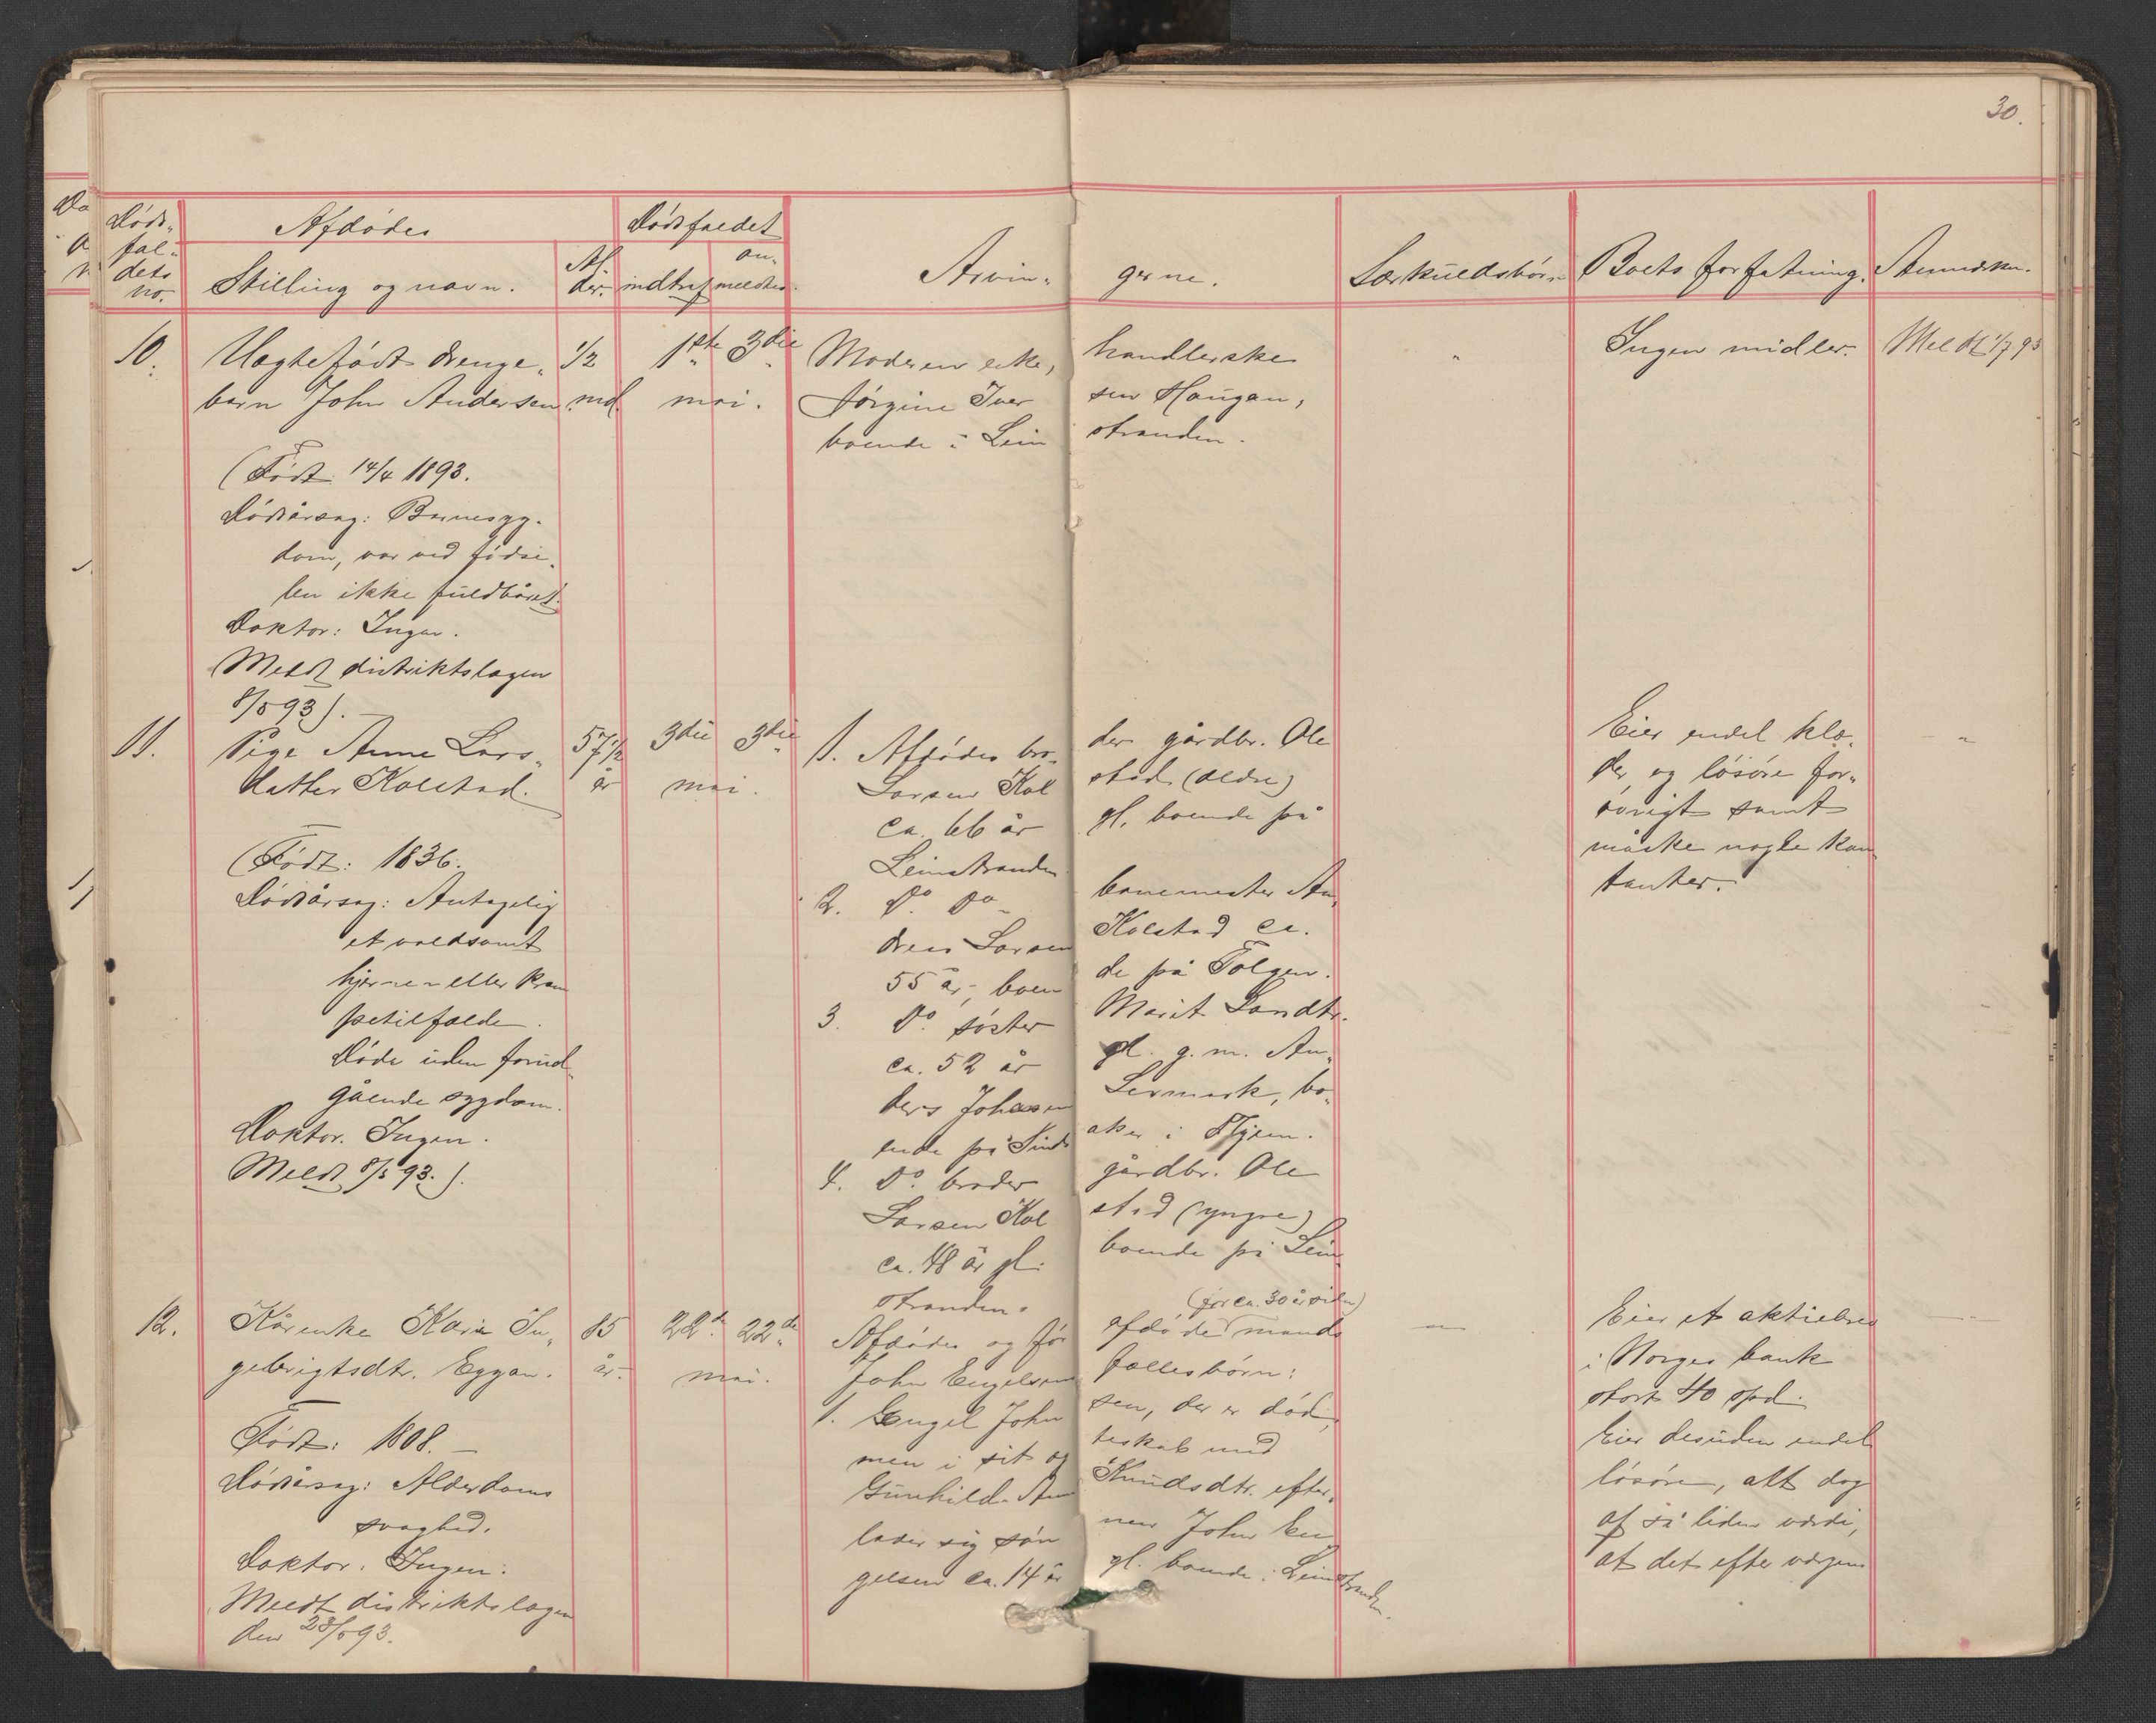 30.
Døds-
fal-
dets
no.
Afdødes
Stilling og navn.
Al-
der.
Dødsfaldet
indtraf
an-
meldtes.
Arvin- gerne.
Særkuldsbørn
Boets forfatning.
Anmerkn.
10.
Uægtefødt drenge-
barn John Andersen
(Født 14/4 1893.
Dødsårsag: Barnesyg-
dom, var ved fødse-
len ikke fuldbåret.
Doktor: Ingen.
Meldt distriktslægen
8/5 93).
1/2
md.
1ste 3die
mai.
Moderen enke, handlerske
Jørgine Iver sen Haugan,
boende i Lein stranden.
"
Ingen midler.
Meldt 1/7 93
11.
Pige Anne Lars-
datter Kolstad.
(Født: 1836.
Dødsårsag: Antagelig
et voldsomt
hjerne- eller kram
petilfælde.
Døde uden forud-
gående sygdom.
Doktor. Ingen.
Meldt 8/5 93.).
57 1/2
år
3die 3die
mai.
1. Afdødes bro- der gårdbr. Ole
Larsen Kol stad (ældre)
ca. 66 år gl. boende på
Leinstranden
2. Do. Do banemester An-
dreas Larsen Kolstad ca.
55 år, boen de på Tolgen.
3. Do. søster Marit Larsdtr.
ca. 52 år gl. g. m. An-
ders Johnsen Lermark, bo-
ende på Sinds aker i Hjem.
4. Do. broder gårdbr. Ole
Larsen Kol stad (yngre)
ca. 48 år gl. boende på Lein
stranden.
Eier endel klæ-
der, og løsøre for-
øvrigt samt
måske nogle kon-
tanter.
"
12.
Kårenke Kari In-
gebrigtsdtr. Eggan.
Født: 1808. —
Dødsårsag: Alderdoms
svaghed.
Doktor. Ingen.
Meldt distriktslægen
den 23/5 93.
85
år.
22de 22de
mai.
(for ca. 30 år siden)
Afdødes og før afdøde mands
John Engelsens fællesbørn:
1. Engel John sen, der er død,
men i sit æg teskab med
Gunhild An Knudsdtr. efter-
lader sig søn nen John En
gelsen ca. 14 år gl. boende i Leinstranden.
—
Eier et aktiebrev
i Norges bank
stort 40 spd.
Eier desuden endel
løsøre, alt dog
af så liden værdi,
at det efter vægens
—